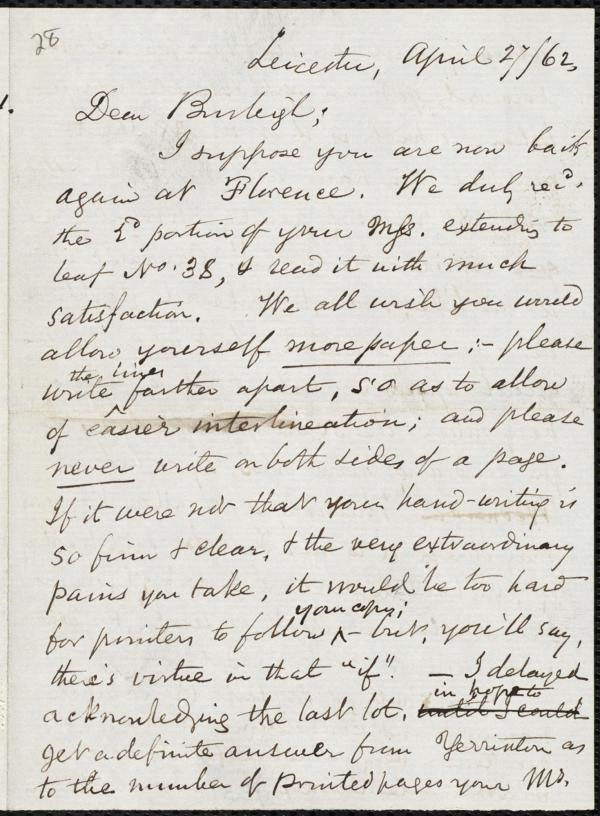 28
Leicester, April 27/62,
Dear Burleigh;
I suppose you are now back
again at Florence. We duly rec'd.
the portion of your Mss. extending to
leaf No. 38, & read it with much
satisfaction. We all wish you would
allow yourself more paper; - please
write the lines farther apart, so as to allow
of easier interlineation; and please
never write on both sides of a page.
If it were not that your hand-writing is
so firm & clear, & the very extraordinary
pains you take, it would be too hard
for printers to follow your copy; - but, you'll say,
there's virtue in that "if". - I delayed
acknowledging the last lot, until I could in hope to
get a definite answer from Yerrinton as
to the number of printed pages your Ms.